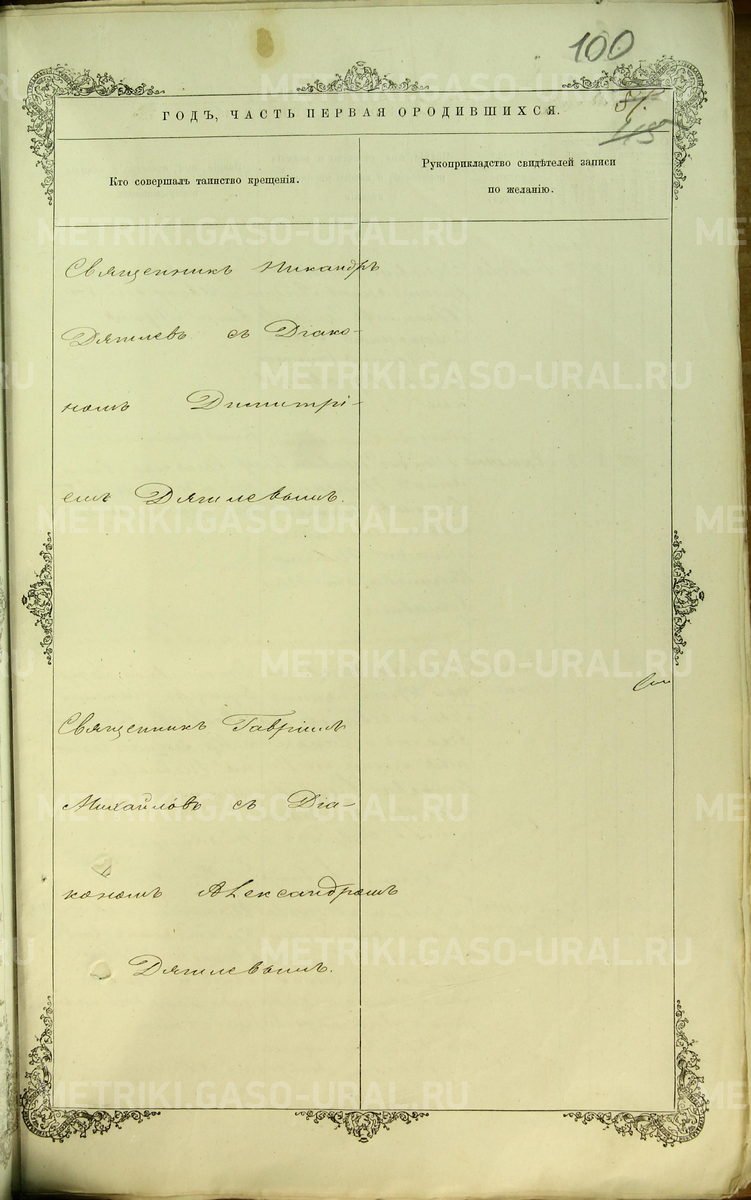 100
ГОДЪ, ЧАСТЬ ПЕРВАЯ О РОДИВШИХСЯ.
51.
115
Кто совершалъ таинство крещенія.
Рукоприкладство свидѣтелей записи
по желанію.
Священникъ Никандръ
Дягилевъ съ Діако-
номъ Димитрі-
емъ Дягилевымъ.
Священникъ Гавріилъ
Михайловъ съ Діа-
кономъ Александромъ
Дягилевымъ.
METRIKI.GASO-URAL.RU